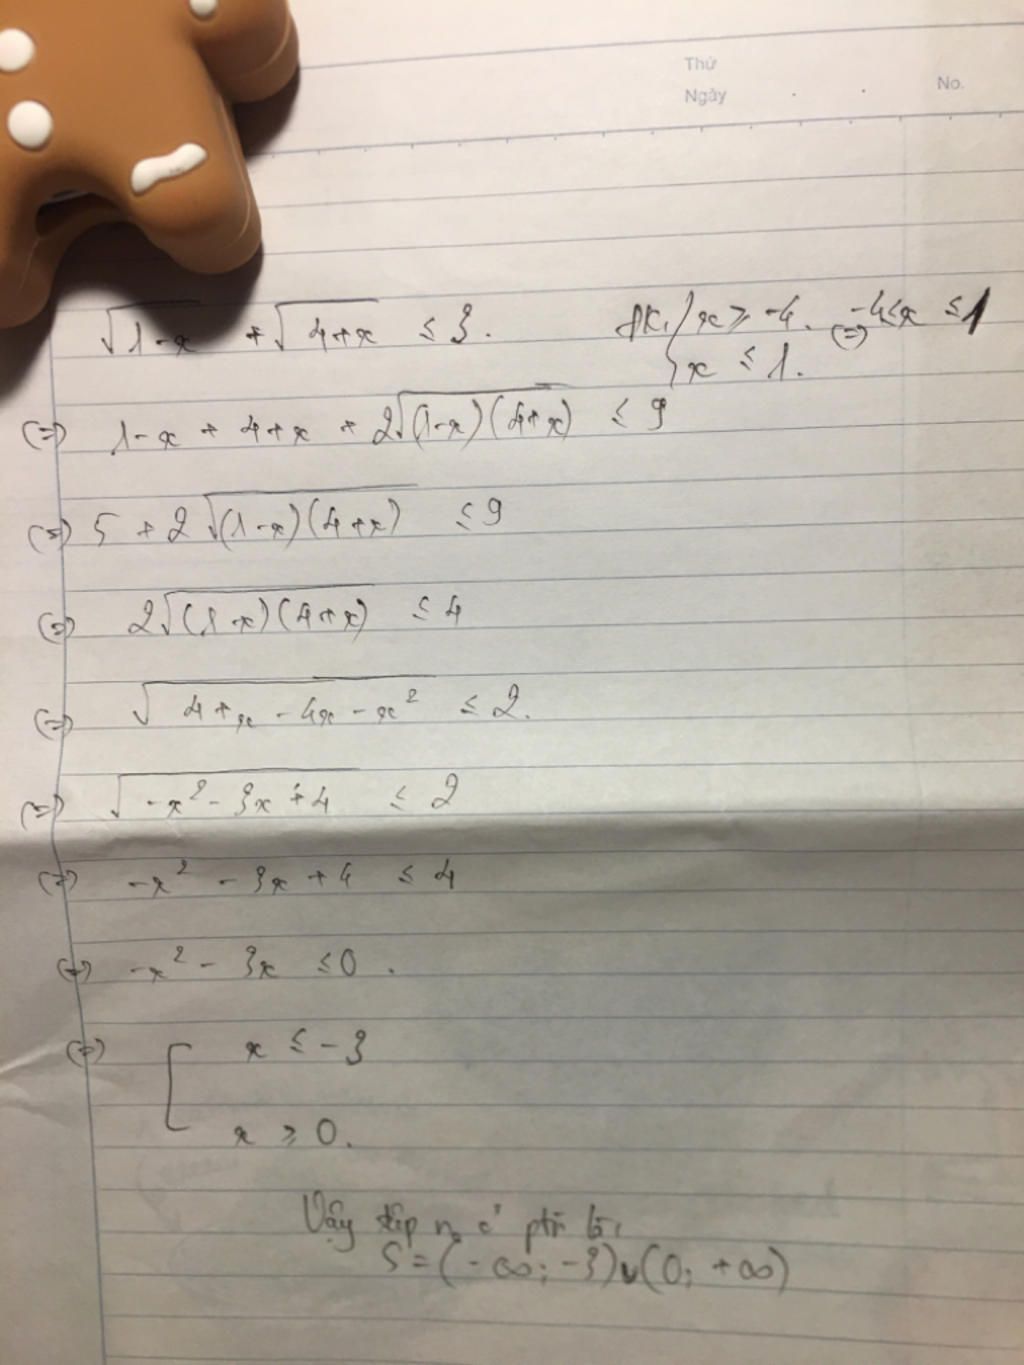 Thứ
Ngày
No.
√(1-x) + √(4+x) ≤ 3. đk: { x ≥ -4. (=) -4≤x ≤1
x ≤ 1.
(=) 1-x + 4+x + 2√((1-x)(4+x)) ≤ 9
(=) 5 + 2√((1-x)(4+x)) ≤ 9
(=) 2√((1-x)(4+x)) ≤ 4
(=) √(4+x-4x-x²) ≤ 2.
(=) √(-x²-3x+4) ≤ 2
(=) -x² - 3x + 4 ≤ 4
(=) -x² - 3x ≤ 0.
(=) [ x ≤ -3
x ≥ 0.
Vậy tập n₀ ptr là:
S = (-∞; -3)∪(0; +∞)